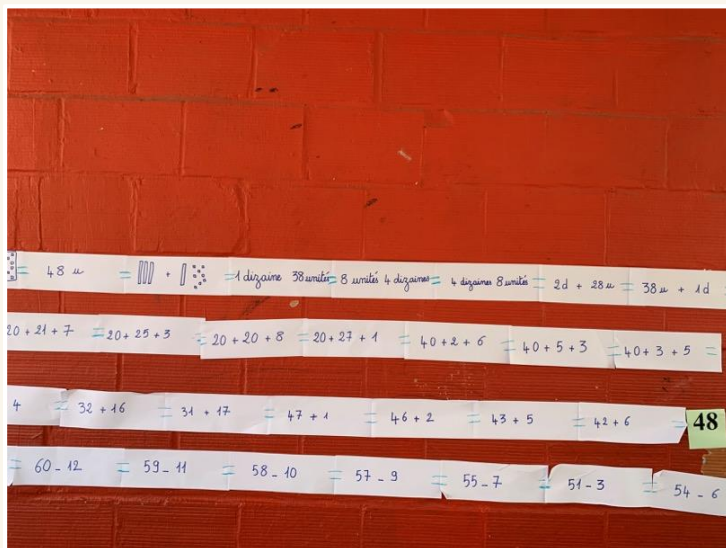 = 48 u = + = 1 dizaine 38 unités = 8 unités 4 dizaines = 4 dizaines 8 unités = 2d + 28 u = 38 u + 1 d
20 + 21 + 7 = 20 + 25 + 3 = 20 + 20 + 8 = 20 + 27 + 1 = 40 + 2 + 6 = 40 + 5 + 3 = 40 + 3 + 5 =
4 = 32 + 16 = 31 + 17 = 47 + 1 = 46 + 2 = 43 + 5 = 42 + 6 = 48
= 60 - 12 = 59 - 11 = 58 - 10 = 57 - 9 = 55 - 7 = 51 - 3 = 54 - 6